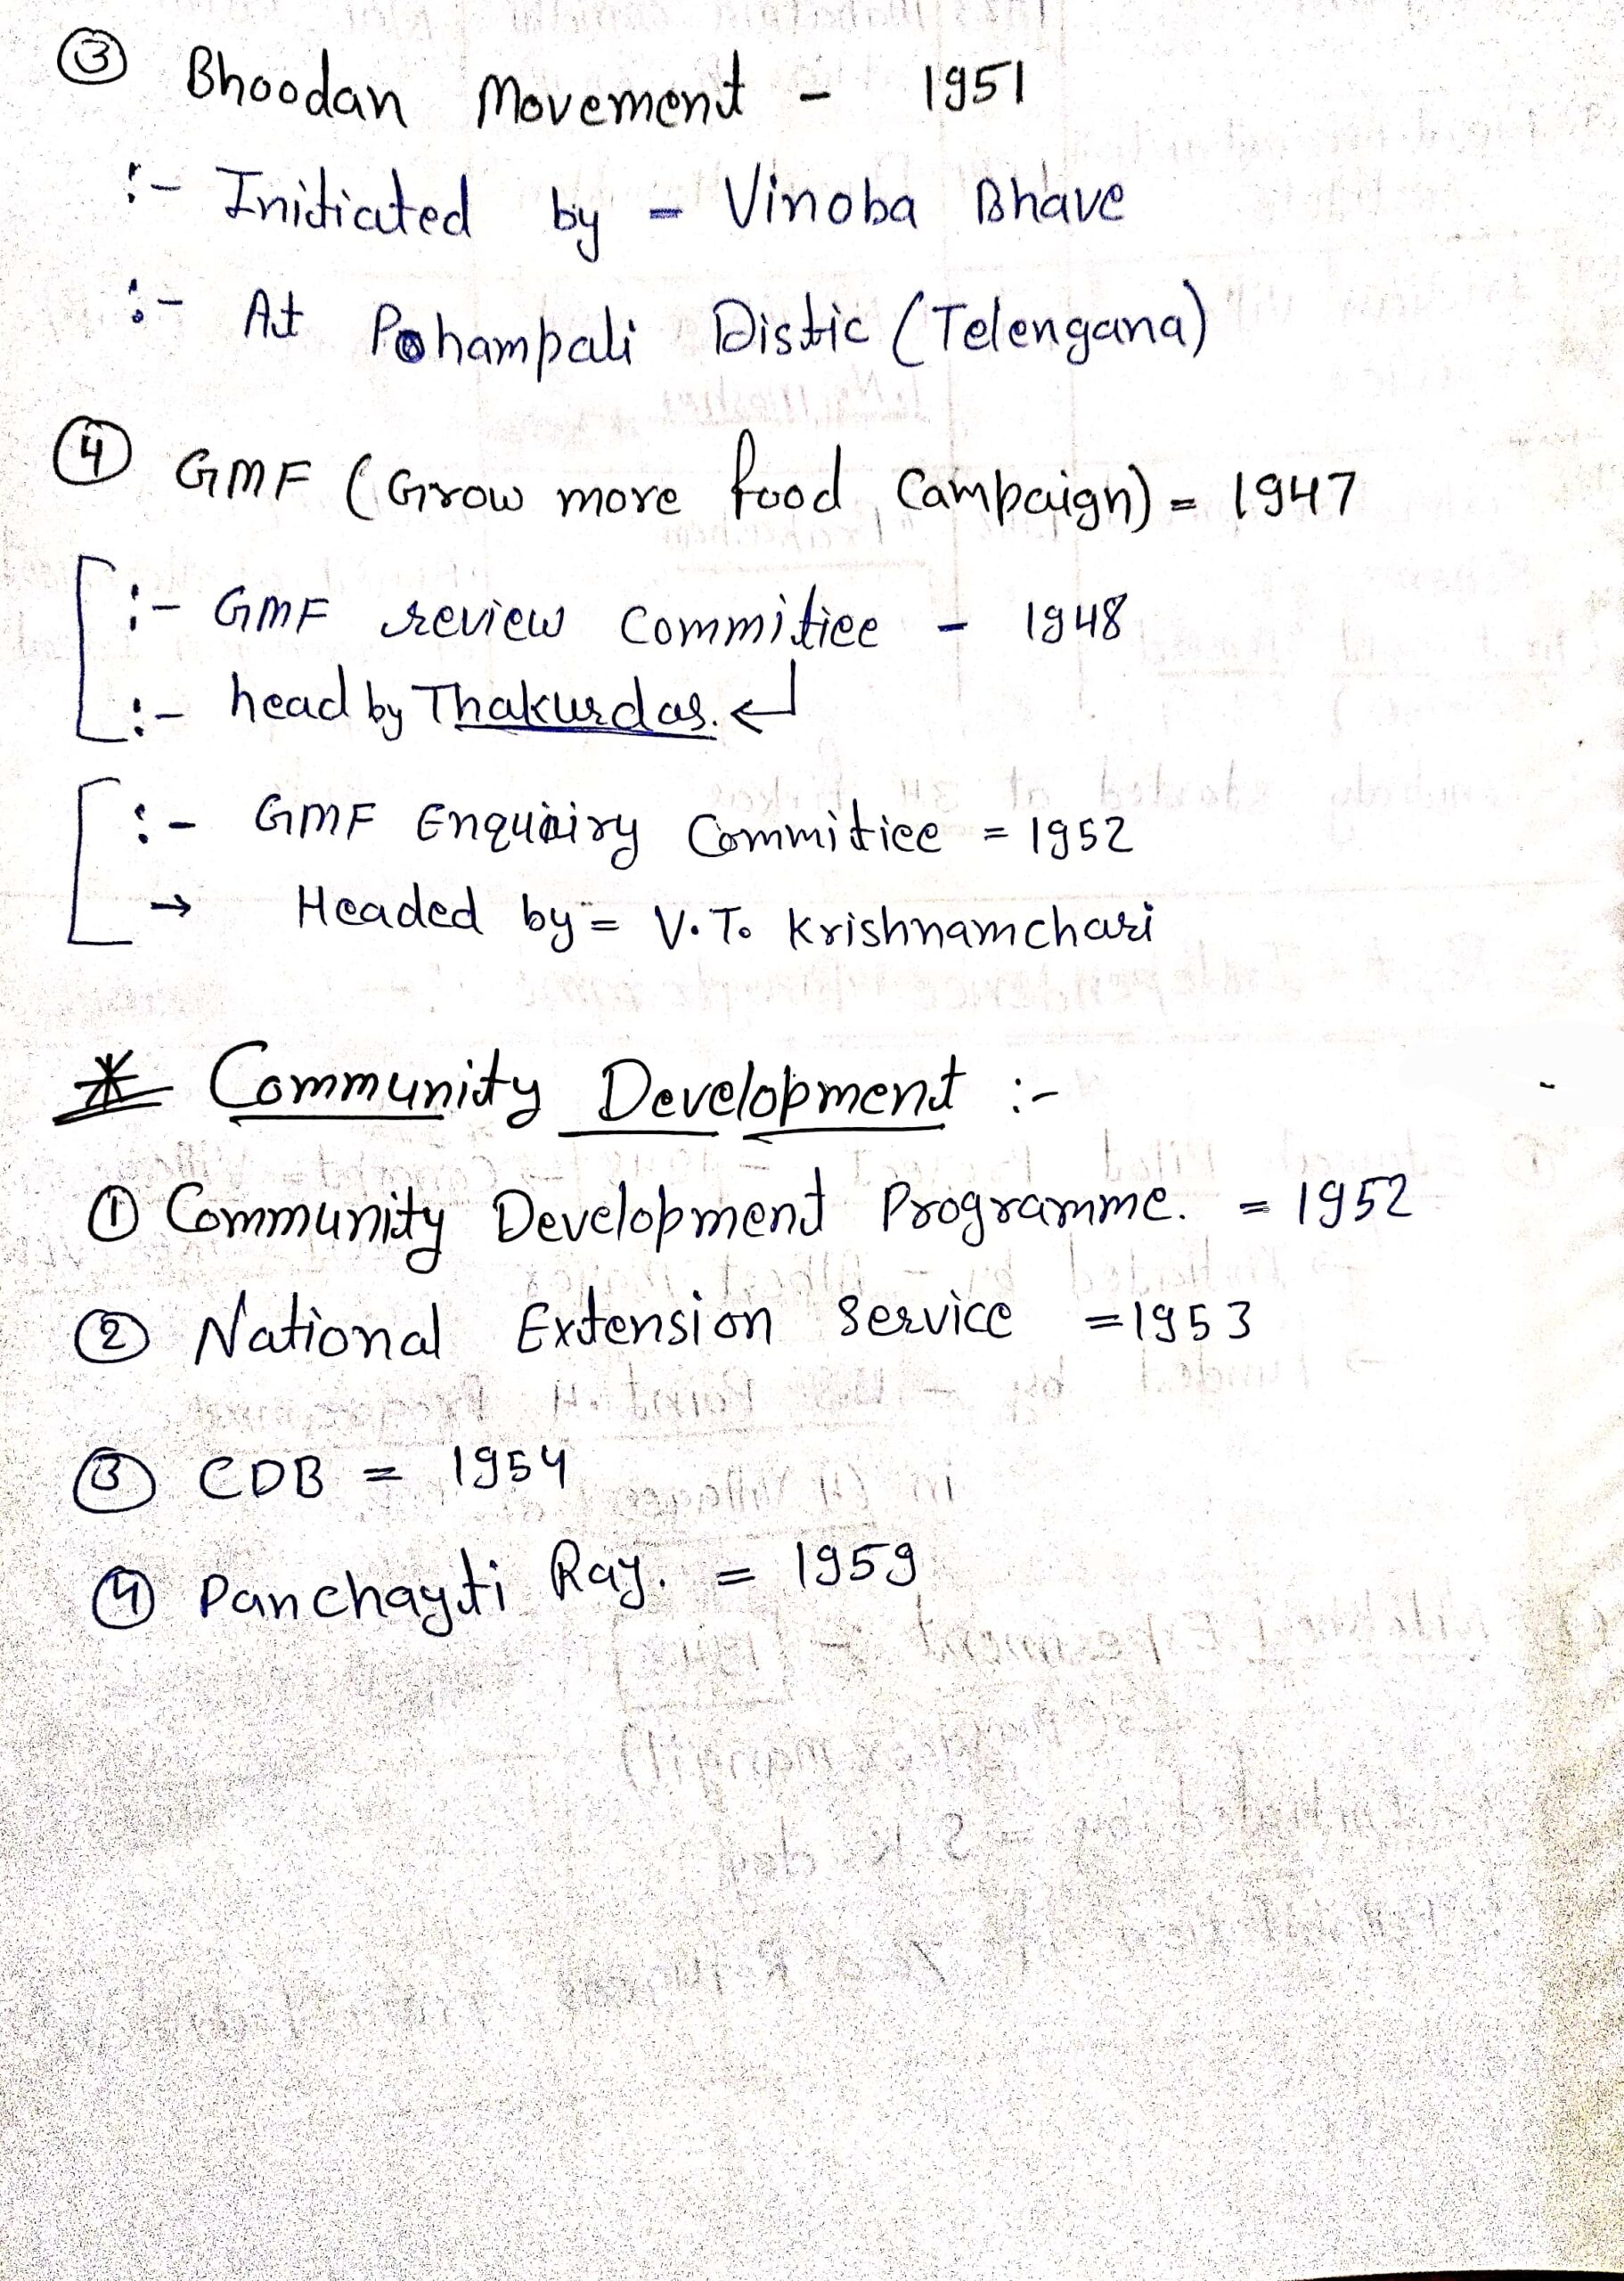 ③ Bhoodan Movement - 1951
:- Initiated by - Vinoba Bhave
:- At Pohampali Distic (Telengana)
④ GMF (Grow more food Campaign) = 1947
:- GMF review Commitiee - 1948
:- head by Thakurdas. ↵
:- GMF Enquiry Commitiee = 1952
→ Headed by = V.T. Krishnamchari
* Community Development :-
① Community Development Programme. = 1952
② National Extension Service = 1953
③ CDB = 1954
④ Panchayti Raj. = 1959